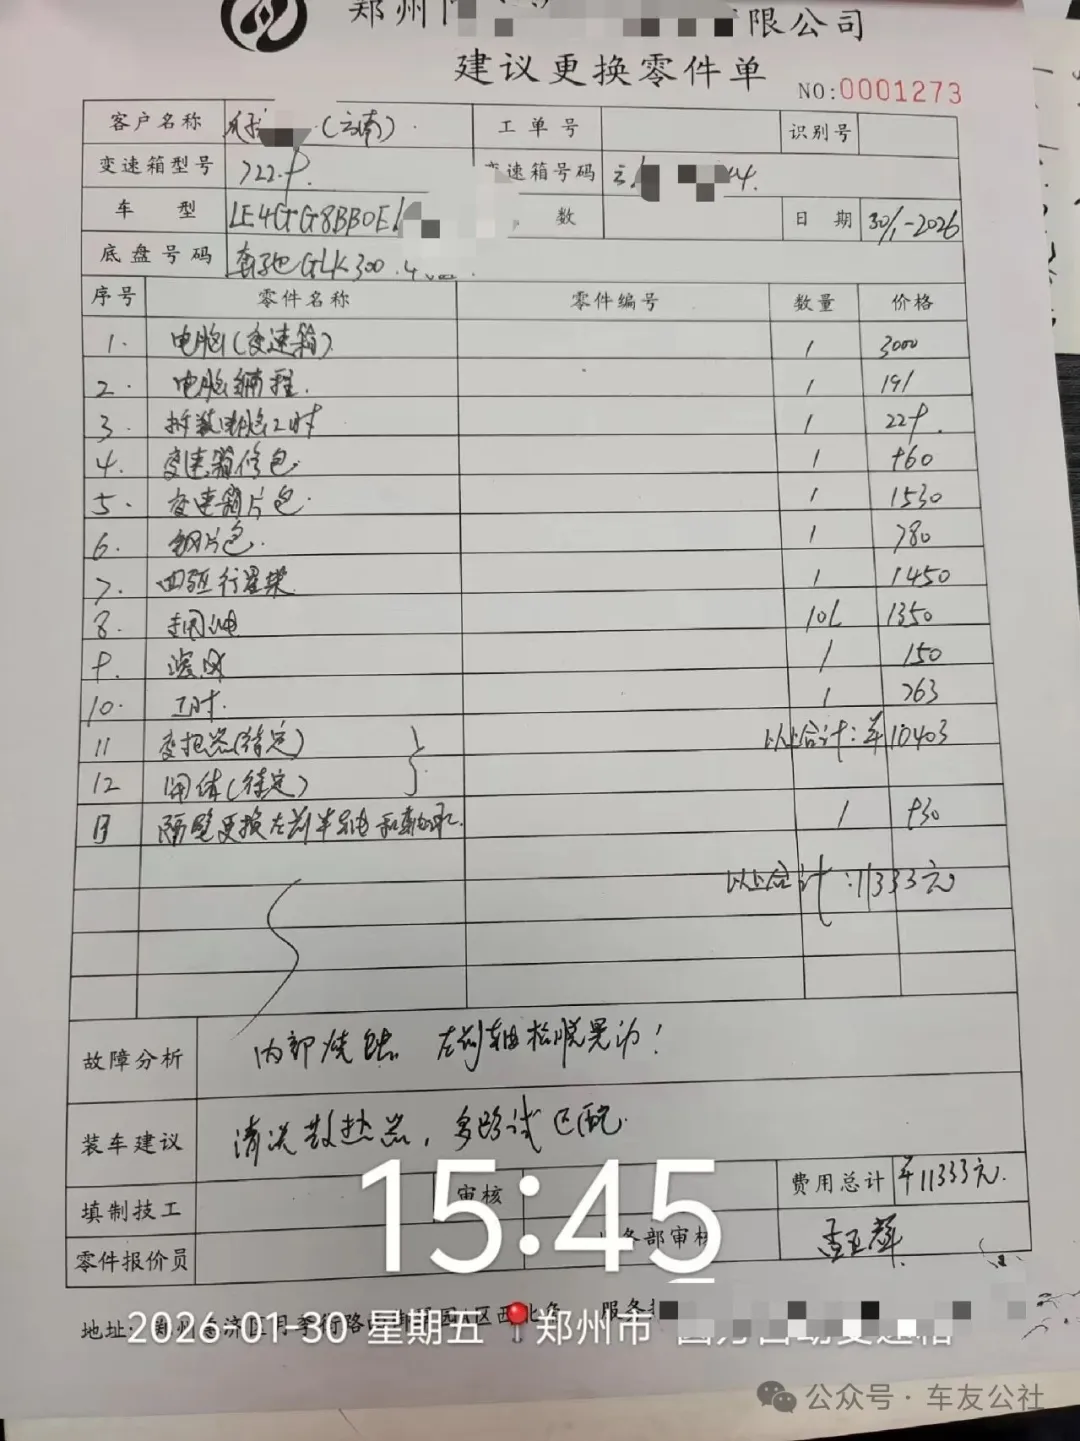 郑州
有限公司
建议更换零件单
NO:0001273
客户名称 (云南) 工单号 识别号
变速箱型号 722.9 变速箱号码 云
车 型 LE4GG8BB0E 数 日 期 30/1-2026
底盘号码 奔驰GLK300
序号 零件名称 零件编号 数量 价格
1. 电脑(变速箱) 1 3000
2. 电脑编程. 1 191
3. 拆装电脑工时 1 229.
4. 变速箱修包 1 960
5. 变速箱片包. 1 1530
6. 钢片包. 1 780
7. 四驱行星架 1 1450
8. 专用油 10L 1350
9. 滤网 1 150
10. 工时. 1 763
11 变扭器(待定) 以上合计:¥10403
12 阀体(待定)
13 隔壁更换左前半轴和轴承. 1 930
以上合计:11333元
故障分析 内部烧蚀 左前轴松脱晃动!
装车建议 清洗散热器,多路试匹配.
填制技工 审核 费用总计 ¥11333元.
零件报价员 务部审核
15:45
地址: 服务
2026-01-30 星期五 郑州市
公众号·车友公社